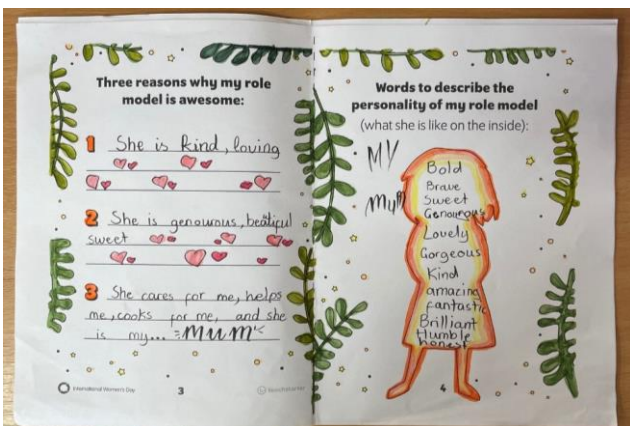 Three reasons why my role
model is awesome:
1 She is kind, loving
2 She is genourous, beatiful
sweet
3 She cares for me, helps
me, cooks for me, and she
is my... =Mum
International Women's Day
3
Words to describe the
personality of my role model
(what she is like on the inside):
MY
Mum
Bold
Brave
Sweet
Genourous
Lovely
Gorgeous
Kind
amazing
fantastic
Brilliant
Humble
honest
4